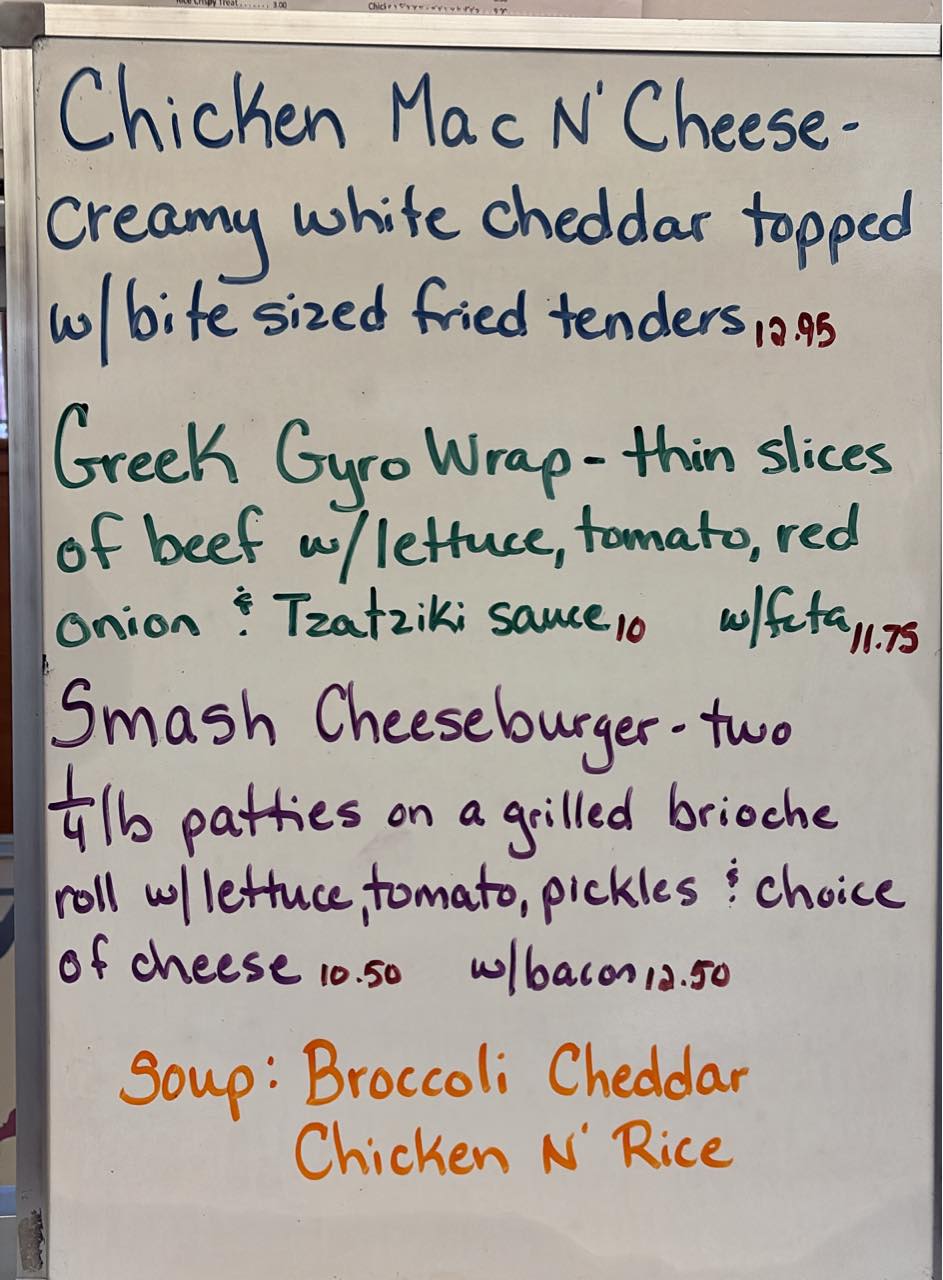 Rice Crispy Treat....... 3.00
Chicken Mac N' Cheese-
creamy white cheddar topped
w/bite sized fried tenders 12.95
Greek Gyro Wrap - thin slices
of beef w/lettuce, tomato, red
onion & Tzatziki sauce 10 w/feta 11.75
Smash Cheeseburger - two
1/4 lb patties on a grilled brioche
roll w/lettuce, tomato, pickles & choice
of cheese 10.50 w/bacon 12.50
Soup: Broccoli Cheddar
Chicken N' Rice